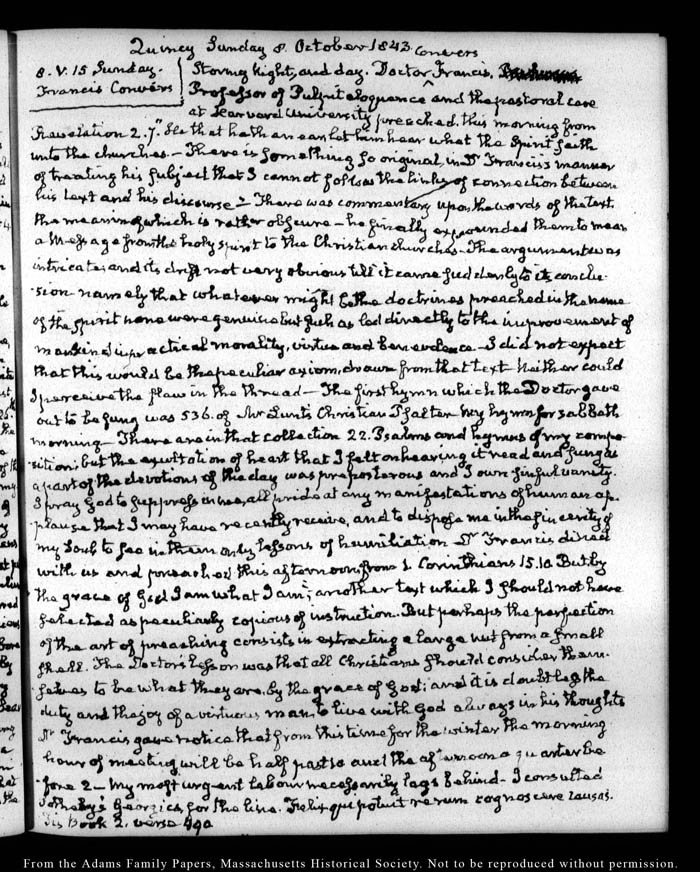 Quincy Sunday 8. October 1843
Convers
8. V:15 Sunday.
Francis Convers
Stormy Night, and day. Doctor Francis,
Professor of Pulpit eloquence ^ and the pastoral care
at Harvard University preached this morning from
Revelation 2.7. He that hath an ear let him hear what the Spirit saith
unto the churches— There is something so original in Dr Francis's manner
of treating his subject that I cannot follow the links of connection between
his text and his discourse— There was commentary upon the words of the text
the meaning of which is rather obscure— he finally expounded them to mean
a Message from the holy spirit to the Christian churches— The argument was
intricate, and its drift not very obvious till it came suddenly to its conclu-
sion namely that whatever might be the doctrines preached in the name
of the Spirit none were genuine but such as led directly to the improvement of
mankind in practical morality, virtue and benevolence— I did not expect
that this would be the peculiar axiom, drawn from that text Neither could
I perceive the flaw in the thread— The first hymn which the Doctor gave
out to be sung was 536. of Mr Lunt's Christian Psalter My hymn for Sabbath
morning— There are in that collection 22. Psalms and hymns of my compo-
sition; but the exultation of heart that I felt on hearing it read and sung as
a part of the devotions of the day was preposterous and I own sinful vanity.
I pray God to suppress in me, all pride at any manifestations of human ap-
plause that I may have recently receive, and to dispose me in the sincerity of
my Soul to see in them only lessons of humiliation Dr Francis dined
with us and preached this afternoon from 1. Corinthians 15.10. But by
the grace of God I am what I am; another text which I should not have
selected as peculiarly copious of instruction. But perhaps the perfection
of the art of preaching consists in extracting a large nut from a small
shell. The Doctor's lesson was that all Christians should consider them-
selves to be what they are, by the grace of God; and it is doubtless the
duty and the joy of a virtuous man to live with God always in his thoughts
Mr Francis gave notice that from this time for the winter the morning
hour of meeting will be half past 10 and the afternoon a quarter be
fore 2— My most urgent labour necessarily lags behind— I consulted
Sotheby's Georgics, for the line. Felix qui potuit rerum cognoscere causas.
Tis Book 2. verse 490
From the Adams Family Papers, Massachusetts Historical Society. Not to be reproduced without permission.